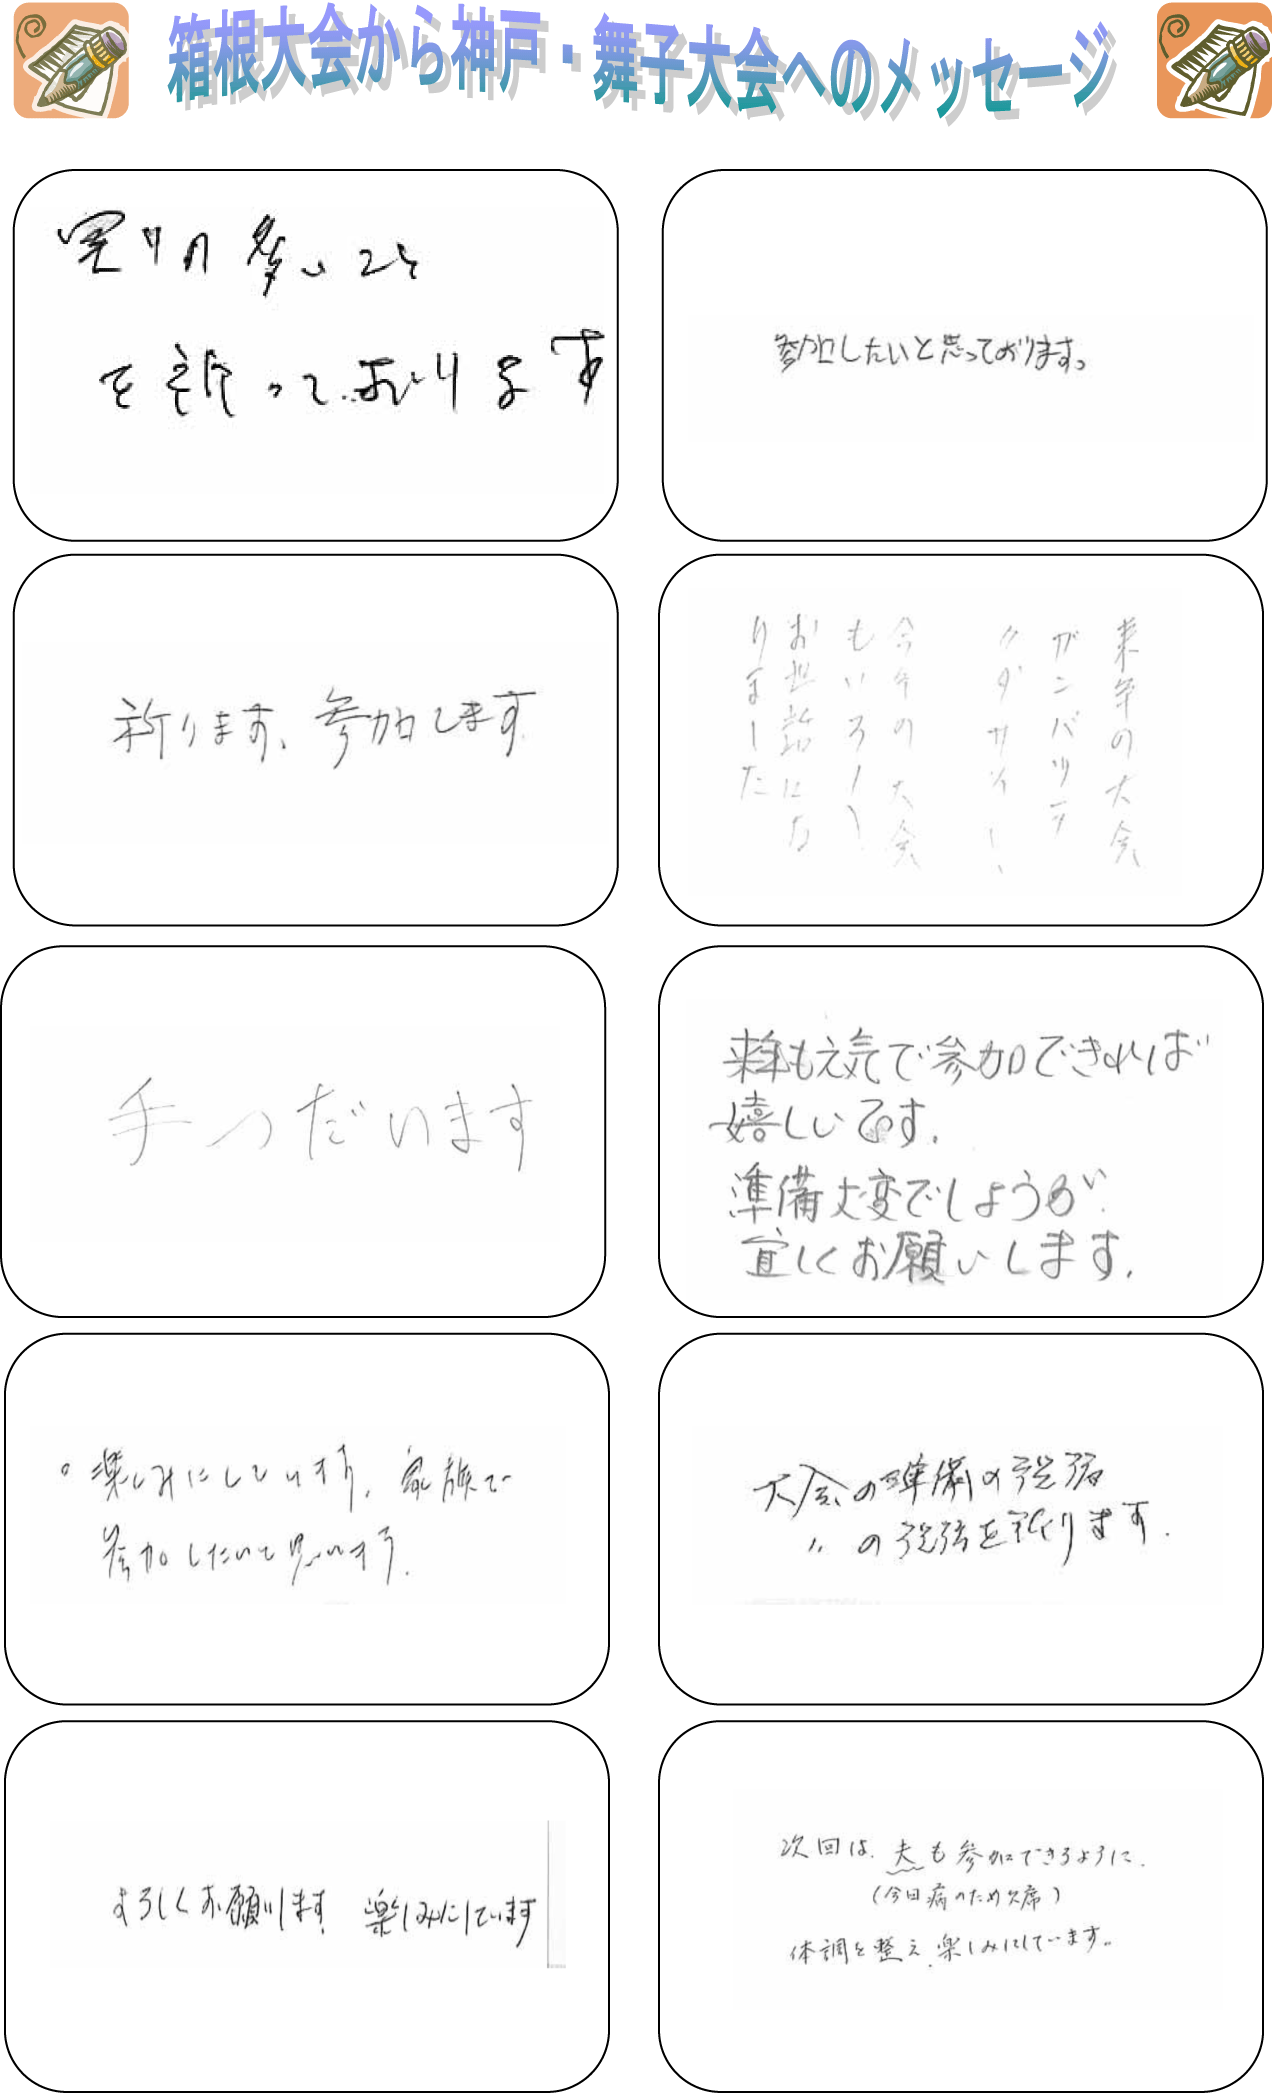 箱根大会から神戸・舞子大会へのメッセージ
実りの多いこと
を祈っております
参加したいと思っております。
祈ります、参加します
来年の大会
ガンバッテ
クダサイ!、
今年の大会
もいろ〱
お世話にな
りました
手つだいます
来年も元気で参加できれば
嬉しいです.
準備大変でしょうが
宜しくお願いします.
○楽しみにしています. 家族で
参加したいと思います.
大会の準備の
〃の を祈ります.
よろしくお願いします 楽しみにしています
次回は、夫も参加できるように.
(今日病のため欠席)
体調を整え、楽しみにしています。